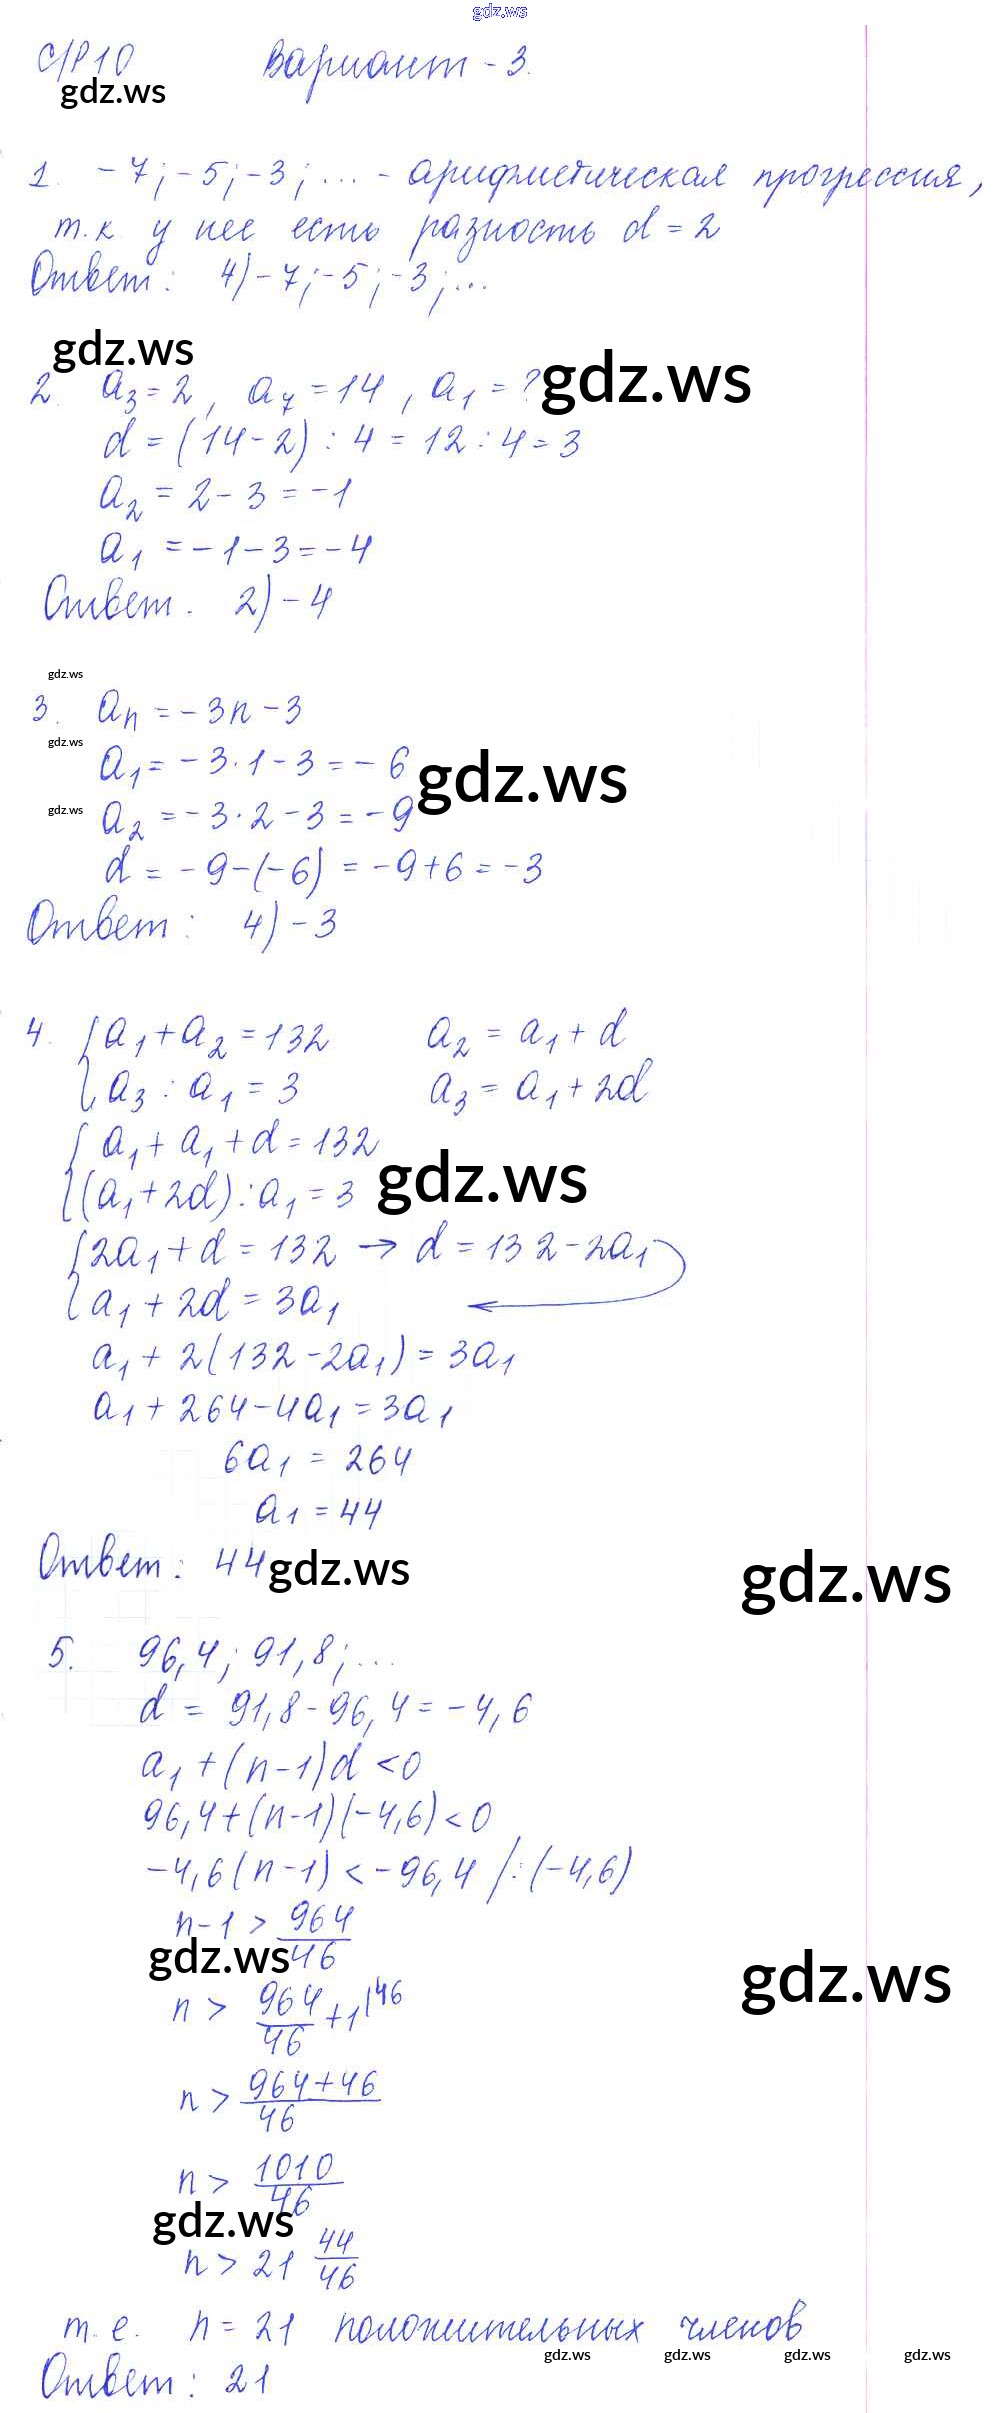 gdz.ws
С/Р 10 Вариант - 3.
gdz.ws
1. -7; -5; -3; ... - арифметическая прогрессия,
т.к. у нее есть разность d = 2
Ответ: 4) -7; -5; -3; ...
gdz.ws
2. a₃ = 2, a₇ = 14, a₁ = ? gdz.ws
d = (14 - 2) : 4 = 12 : 4 = 3
a₂ = 2 - 3 = -1
a₁ = -1 - 3 = -4
Ответ. 2) -4
gdz.ws
3. aₙ = -3n - 3
gdz.ws
a₁ = -3·1 - 3 = -6 gdz.ws
gdz.ws
a₂ = -3·2 - 3 = -9
d = -9 - (-6) = -9 + 6 = -3
Ответ: 4) -3
4. { a₁ + a₂ = 132 a₂ = a₁ + d
{ a₃ : a₁ = 3 a₃ = a₁ + 2d
{ a₁ + a₁ + d = 132
{ (a₁ + 2d) : a₁ = 3 gdz.ws
{ 2a₁ + d = 132 → d = 132 - 2a₁
{ a₁ + 2d = 3a₁ ←
a₁ + 2(132 - 2a₁) = 3a₁
a₁ + 264 - 4a₁ = 3a₁
6a₁ = 264
a₁ = 44
Ответ: 44 gdz.ws gdz.ws
5. 96,4; 91,8; ...
d = 91,8 - 96,4 = -4,6
a₁ + (n-1)d < 0
96,4 + (n-1)(-4,6) < 0
-4,6(n-1) < -96,4 /: (-4,6)
n-1 > 964/46
gdz.ws gdz.ws
n > 964/46 + 1|46
n > 964+46/46
n > 1010/46
gdz.ws
n > 21 44/46
т.е. n = 21 положительных членов
gdz.ws gdz.ws gdz.ws gdz.ws
Ответ: 21